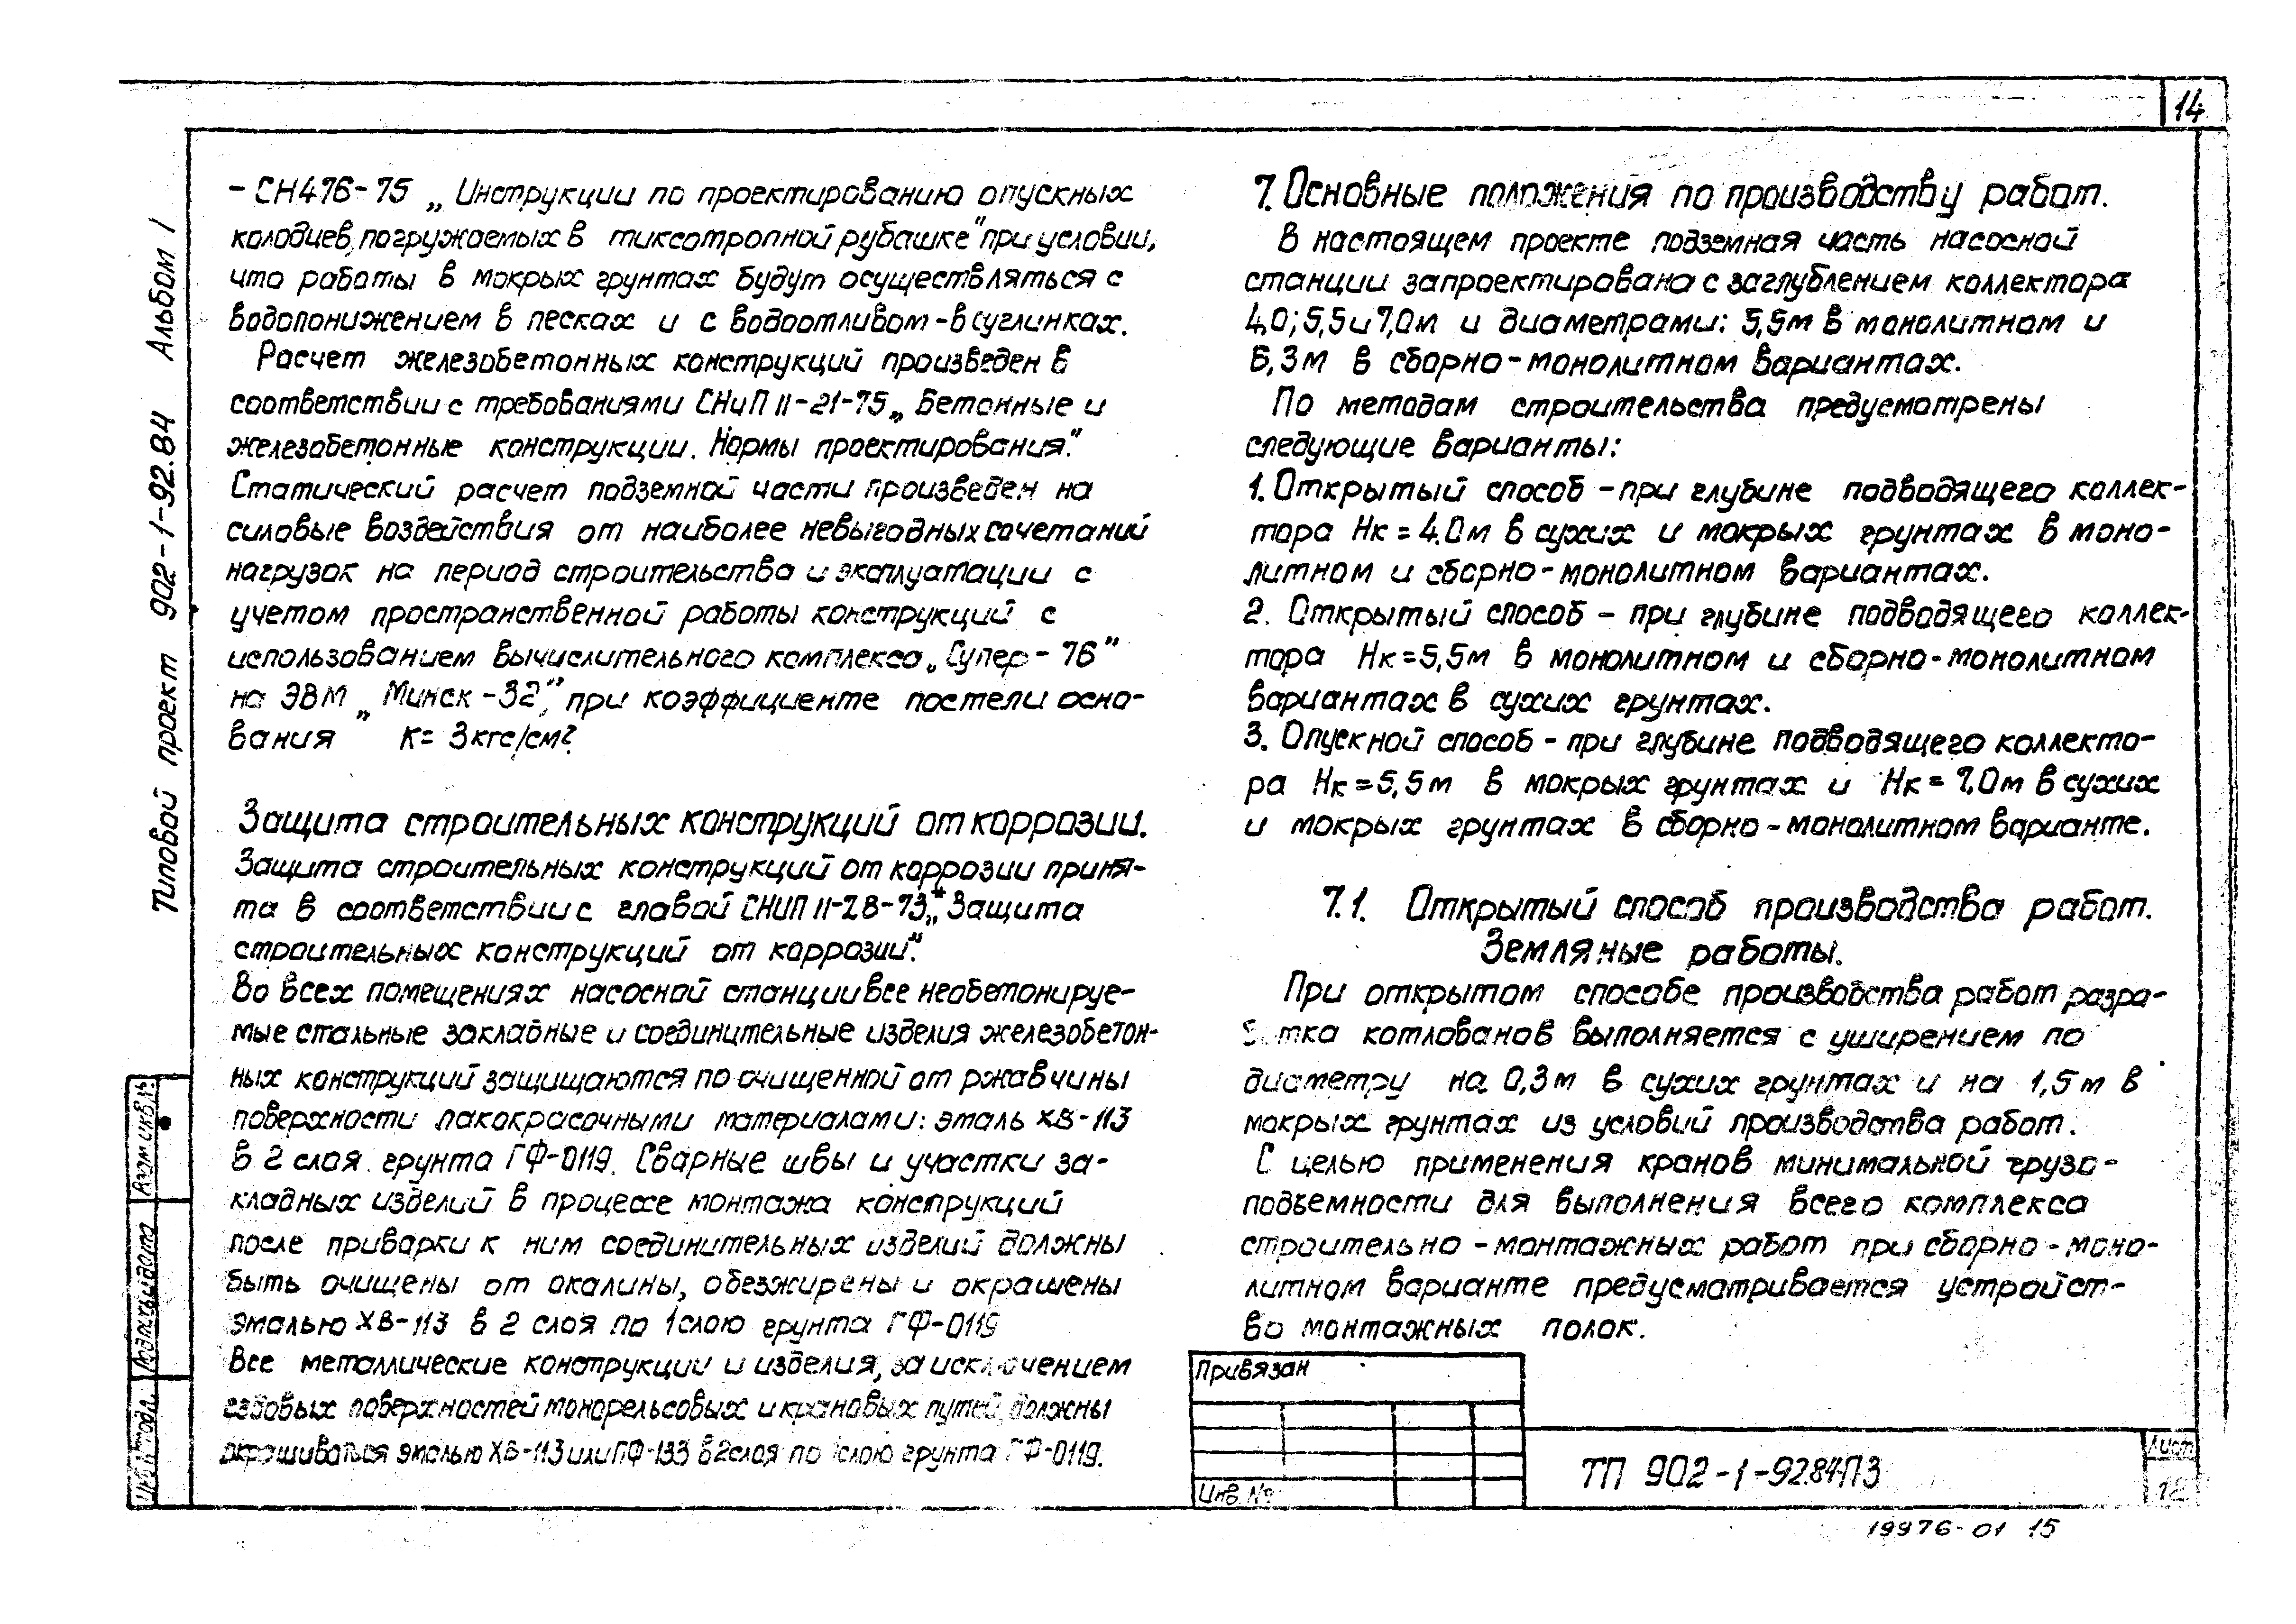 14
Типовой проект 902-1-92.84 Альбом I
- СН 476-75 „Инструкции по проектированию опускных
колодцев, погружаемых в тиксотропной рубашке" при условии,
что работы в мокрых грунтах будут осуществляться с
водопонижением в песках и с водоотливом - в суглинках.
Расчет железобетонных конструкций произведен в
соответствии с требованиями СНиП II-21-75 „Бетонные и
железобетонные конструкции. Нормы проектирования".
Статический расчет подземной части произведен на
силовые воздействия от наиболее невыгодных сочетаний
нагрузок на период строительства и эксплуатации с
учетом пространственной работы конструкций с
использованием вычислительного комплекса „Супер-76"
на ЭВМ „Минск-32", при коэффициенте постели осно-
вания К= 3кгс/см².
Защита строительных конструкций от коррозии.
Защита строительных конструкций от коррозии приня-
та в соответствии с главой СНиП II-28-73* „Защита
строительных конструкций от коррозии".
Во всех помещениях насосной станции все необетонируе-
мые стальные закладные и соединительные изделия железобетон-
ных конструкций защищаются по очищенной от ржавчины
поверхности лакокрасочными материалами: эмаль ХВ-113
в 2 слоя грунта ГФ-0119. Сварные швы и участки за-
кладных изделий в процессе монтажа конструкций
после приварки к ним соединительных изделий должны
быть очищены от окалины, обезжирены и окрашены
эмалью ХВ-113 в 2 слоя по 1 слою грунта ГФ-0119
Все металлические конструкции и изделия, за исключением
ездовых поверхностей монорельсовых и крановых путей, должны
окрашиваться эмалью ХВ-113 или ПФ-133 в 2 слоя по 1 слою грунта ГФ-0119.
7. Основные положения по производству работ.
В настоящем проекте подземная часть насосной
станции запроектирована с заглублением коллектора
4,0; 5,5 и 7,0м и диаметрами: 5,5м в монолитном и
6,3м в сборно-монолитном вариантах.
По методам строительства предусмотрены
следующие варианты:
1. Открытый способ - при глубине подводящего коллек-
тора Нк = 4.0м в сухих и мокрых грунтах в моно-
литном и сборно-монолитном вариантах.
2. Открытый способ - при глубине подводящего коллек-
тора Нк=5,5м в монолитном и сборно-монолитном
вариантах в сухих грунтах.
3. Опускной способ - при глубине подводящего коллекто-
ра Нк=5,5м в мокрых грунтах и Нк= 7.0м в сухих
и мокрых грунтах в сборно-монолитном варианте.
7.1. Открытый способ производства работ.
Земляные работы.
При открытом способе производства работ разра-
ботка котлованов выполняется с уширением по
диаметру на 0,3м в сухих грунтах и на 1,5м в
мокрых грунтах из условий производства работ.
С целью применения кранов минимальной грузо-
подъемности для выполнения всего комплекса
строительно-монтажных работ при сборно-моно-
литном варианте предусматривается устройст-
во монтажных полок.
Взам. инв. №
Подпись и дата
Инв. № подл.
Привязан
Инв. №
ТП 902-1-92.84-ПЗ
Лист
12
19976-01 15